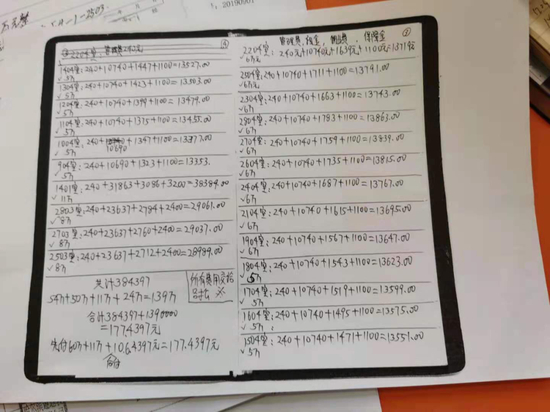 1404室: 240+10740+1447+1100=13527.00
✓5万
1304室: 240+10740+1423+1100=13503.00
✓5万
1204室: 240+10740+1399+1100=13479.00
✓5万
1104室: 240+10740+1375+1100=13455.00
✓5万
1004室: 240+10690+1347+1100=13377.00
✓5万
904室: 240+10690+1323+1100=13353.
✓5万
1401室: 240+31863+3086+3200=38384.00
✓11万
2803室: 240+23637+2784+2400=29061.00
✓8万
2703室: 240+23637+2760+2400=29037.00
✓8万
2503室: 240+23637+2712+2400=28989.00
✓8万
共计384397
54万+50万+11万+24万=139万
合计384397+1390000
=1774397元
先付60万+11万+1064397元=177.4397元
所有费用交给
管理费,税金,契税费,保险金
2204室: 240元+10740元+1639元+1100元=13719元
✓6万元
2504室: 240+10740+1711+1100=13791.00
✓6万
2304室: 240+10740+1663+1100=13743.00
✓6万
2804室: 240+10740+1783+1100=13863.00
✓6万
2704室: 240+10740+1759+1100=13839.00
✓6万
2604室: 240+10740+1735+1100=13815.00
✓6万
2404室: 240+10740+1687+1100=13767.00
✓6万
2104室: 240+10740+1615+1100=13695.00
✓6万
1904室: 240+10740+1567+1100=13647.00
✓6万
1804室: 240+10740+1543+1100=13623.00
✓5万
1704室: 240+10740+1519+1100=13599.00
✓5万
1604室: 240+10740+1495+1100=13575.00
✓5万
1504室: 240+10740+1471+1100=13551.00
✓5万